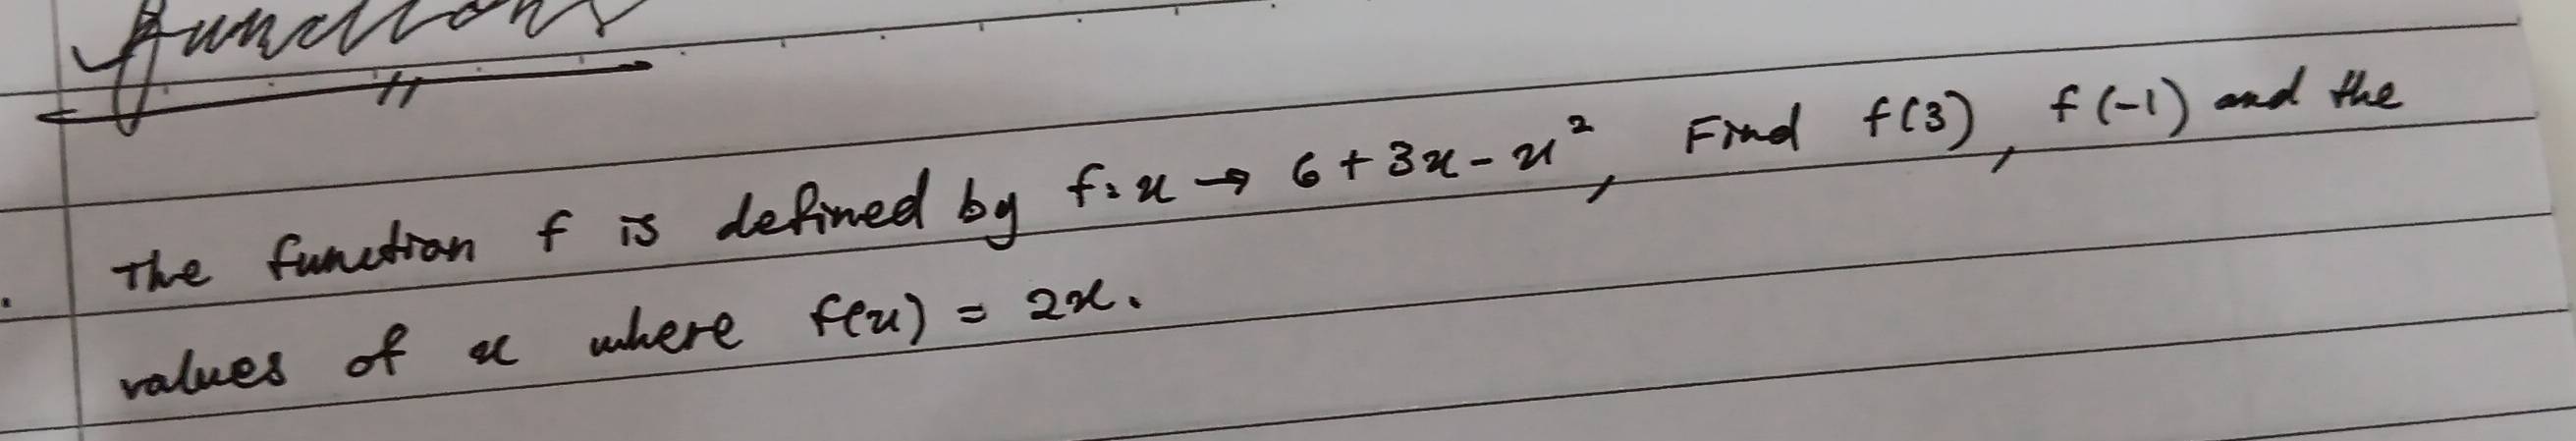 Functions
The function f is defined by f:x → 6 + 3x - x², Find f(3), f(-1) and the
values of x where f(x) = 2x.